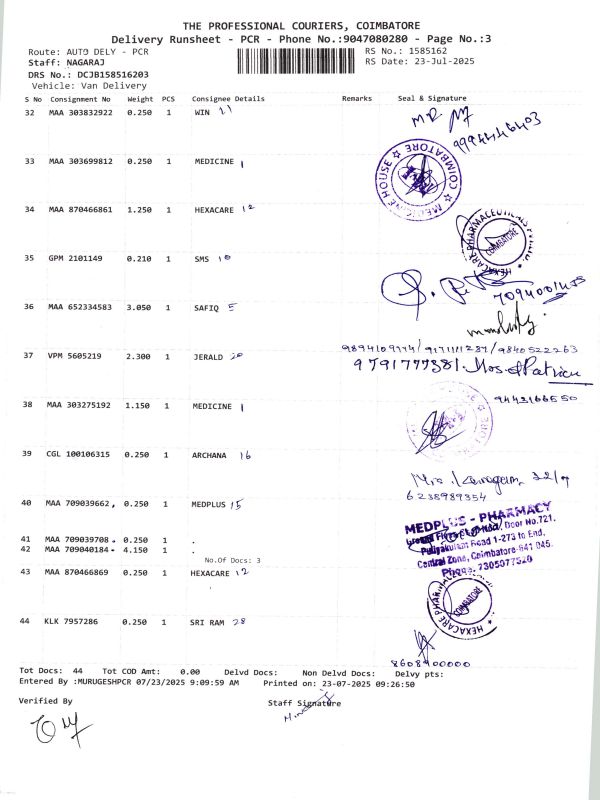 THE PROFESSIONAL COURIERS, COIMBATORE
Delivery Runsheet - PCR - Phone No.:9047080280 - Page No.:3
Route: AUTO DELY - PCR RS No.: 1585162
Staff: NAGARAJ RS Date: 23-Jul-2025
DRS No.: DCJB158516203
Vehicle: Van Delivery
S No Consignment No Weight PCS Consignee Details Remarks Seal & Signature
32 MAA 303832922 0.250 1 WIN 21
9994446403
33 MAA 303699812 0.250 1 MEDICINE 1
MEDICINE HOUSE ☆ COIMBATORE ☆
34 MAA 870466861 1.250 1 HEXACARE 12
HEXACARE PHARMACEUTICALS PVT LTD. COIMBATORE
35 GPM 2101149 0.210 1 SMS 10
36 MAA 652334583 3.050 1 SAFIQ 5
37 VPM 5605219 2.300 1 JERALD 20
9840522263
9791777381. Mos
38 MAA 303275192 1.150 1 MEDICINE 1
9443166550
39 CGL 100106315 0.250 1 ARCHANA 16
6238989354
40 MAA 709039662, 0.250 1 MEDPLUS 15
MEDPLUS - PHARMACY
Door No.721,
Puliyakulam Road 1-273 to End,
Central Zone, Coimbatore-641 045.
Phone: 7305077520
41 MAA 709039708 . 0.250 1 .
42 MAA 709040184 . 4.150 1 .
No.Of Docs: 3
43 MAA 870466869 0.250 1 HEXACARE 12
HEXACARE PHARMACEUTICALS COIMBATORE
44 KLK 7957286 0.250 1 SRI RAM 28
8608400000
Tot Docs: 44 Tot COD Amt: 0.00 Delvd Docs: Non Delvd Docs: Delvy pts:
Entered By :MURUGESHPCR 07/23/2025 9:09:59 AM Printed on: 23-07-2025 09:26:50
Verified By Staff Signature